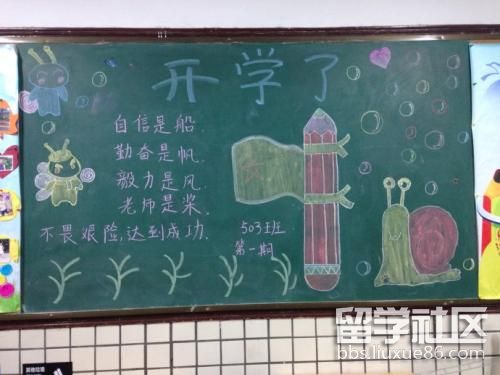 开学了
自信是船.
勤奋是帆.
毅力是风.
老师是桨.
不畏艰险,达到成功.
503班
第一期
留学社区
bbs.liuxue86.com